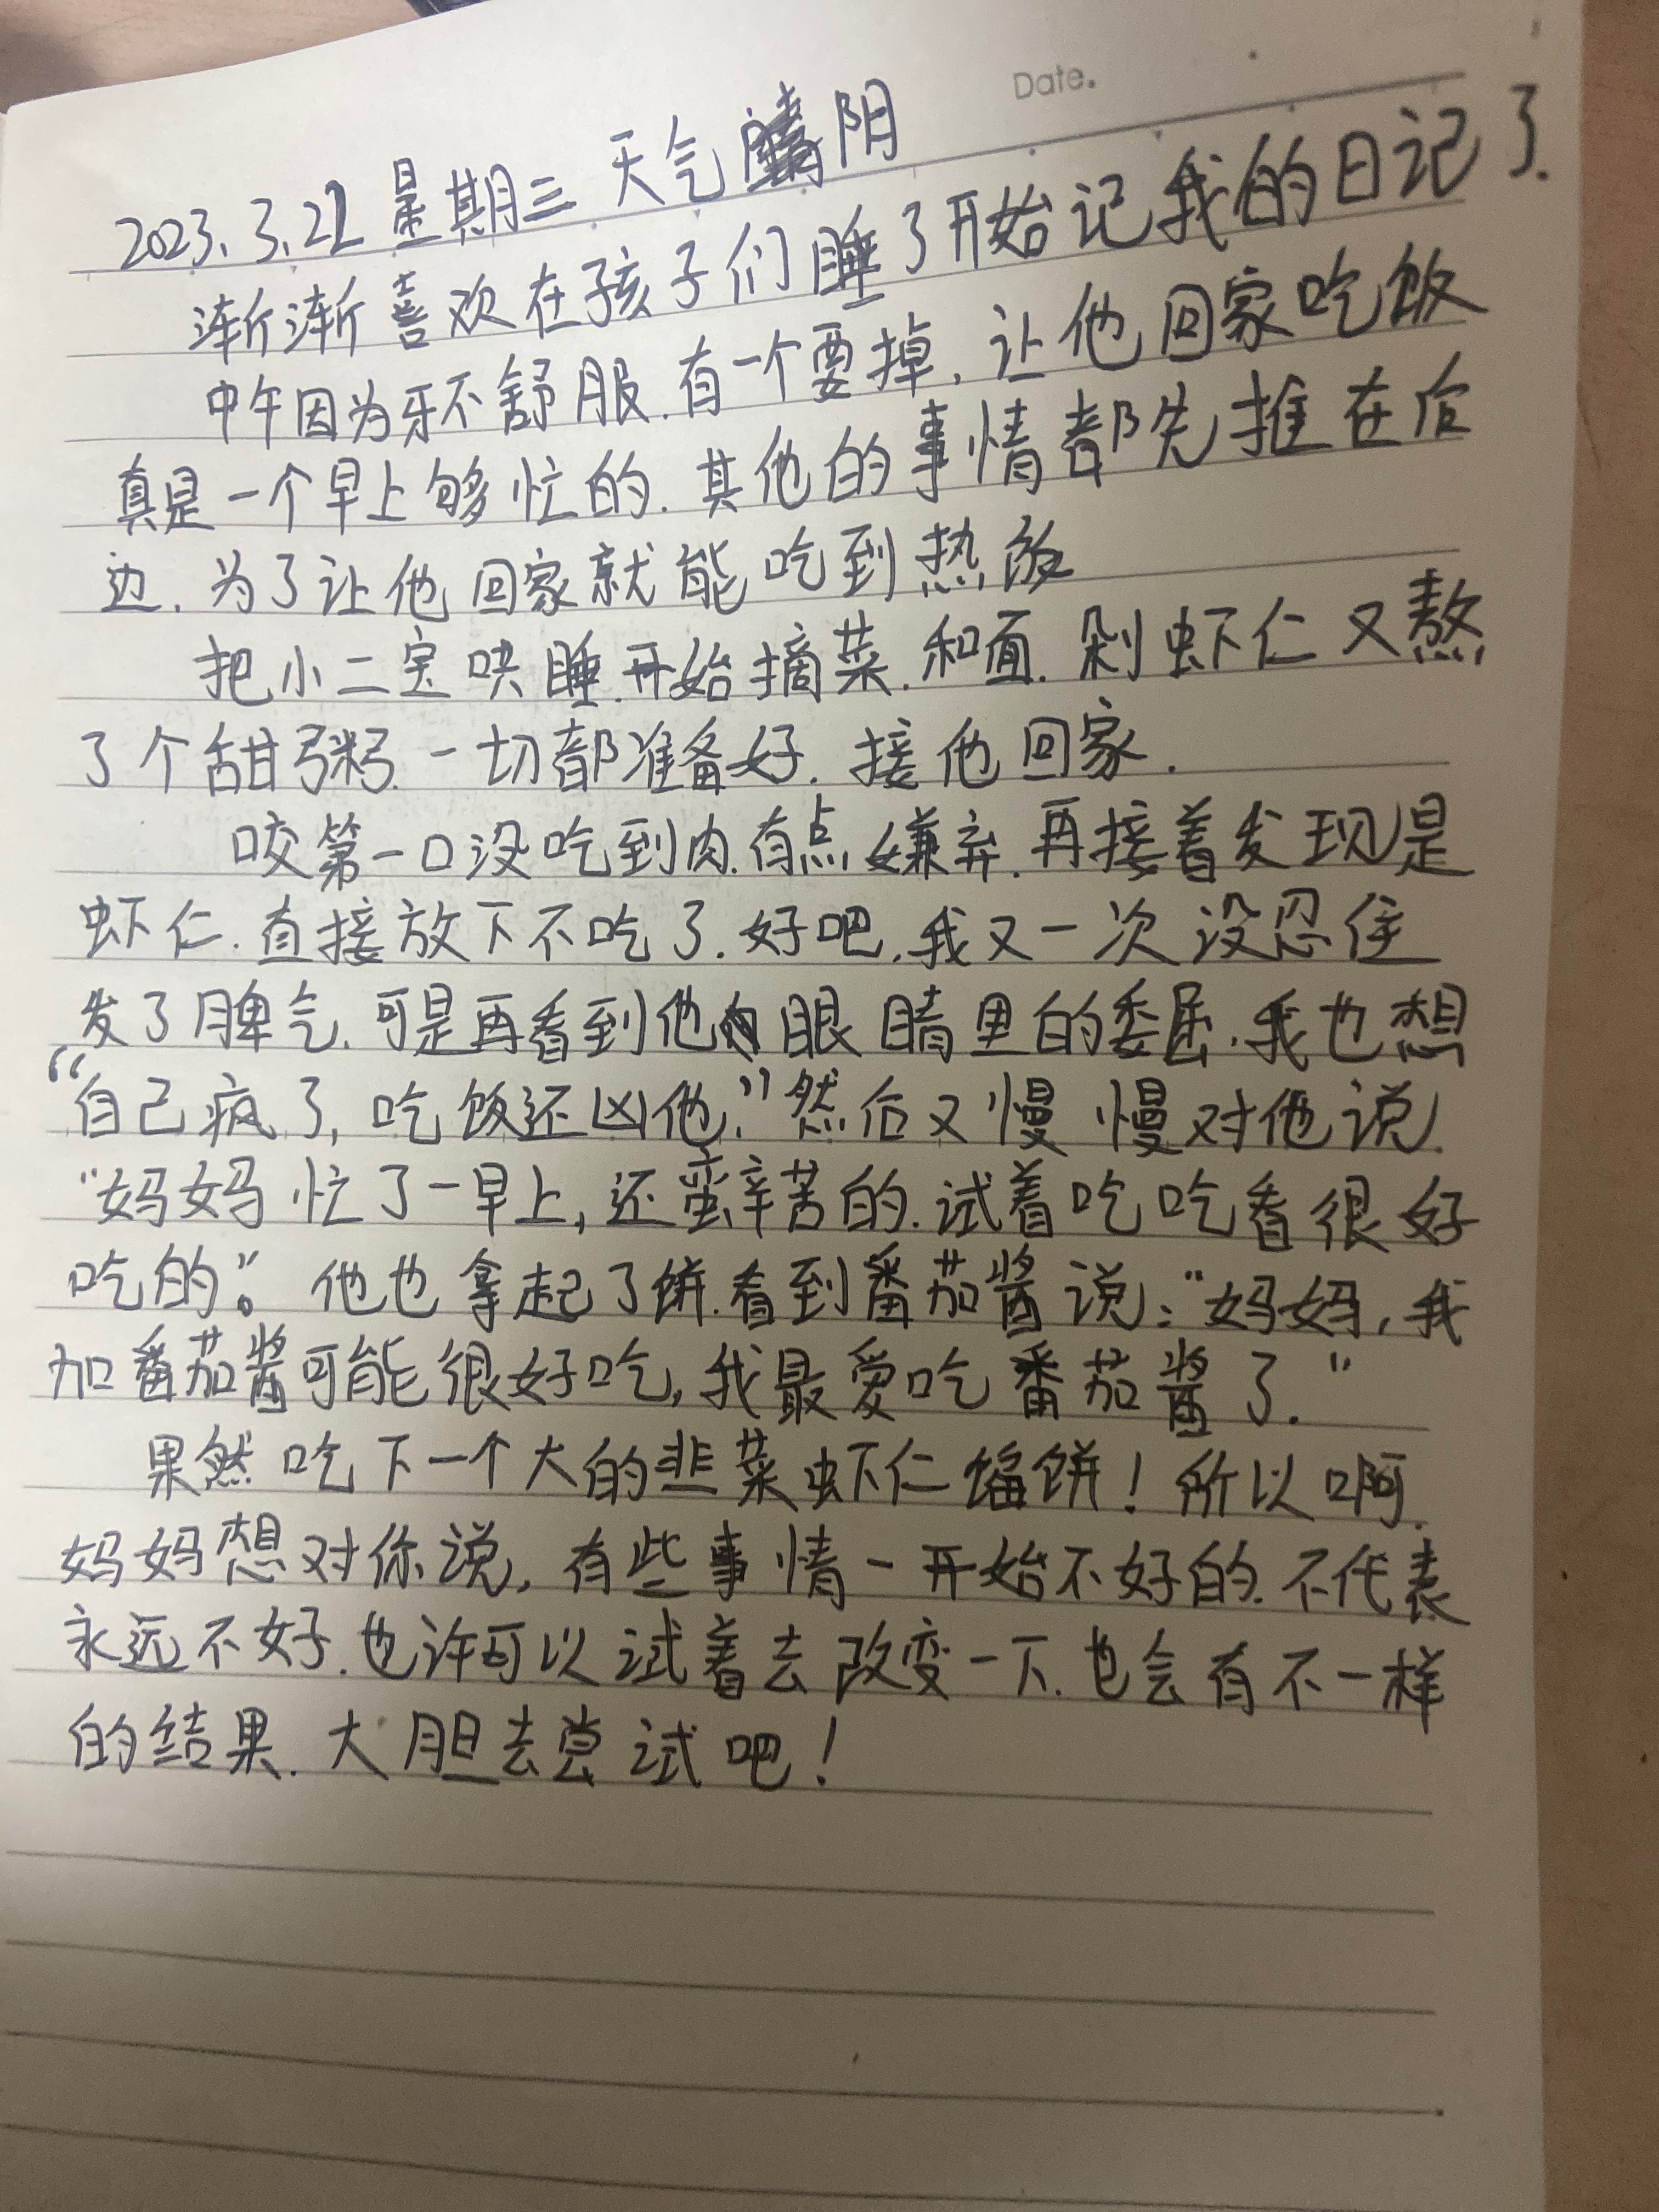 Date.
2023.3.22 星期三 天气 阴
渐渐喜欢在孩子们睡了开始记我的日记了.
中午因为牙不舒服.有一个要掉.让他回家吃饭
真是一个早上够忙的.其他的事情都先推在后
边.为了让他回家就能吃到热饭
把小二宝哄睡.开始摘菜.和面.剁虾仁又熬
了个甜粥.一切都准备好.接他回家.
咬第一口没吃到肉.有点嫌弃.再接着发现是
虾仁.直接放下不吃了.好吧.我又一次没忍住
发了脾气.可是再看到他眼睛里的委屈.我也想
“自己疯了,吃饭还凶他.”然后又慢慢对他说.
“妈妈忙了一早上,还蛮辛苦的.试着吃吃看很好
吃的”。他也拿起了饼.看到番茄酱说:“妈妈,我
加番茄酱可能很好吃,我最爱吃番茄酱了.”
果然吃下一个大的韭菜虾仁馅饼!所以啊.
妈妈想对你说,有些事情一开始不好的.不代表
永远不好.也许可以试着去改变一下.也会有不一样
的结果.大胆去尝试吧!